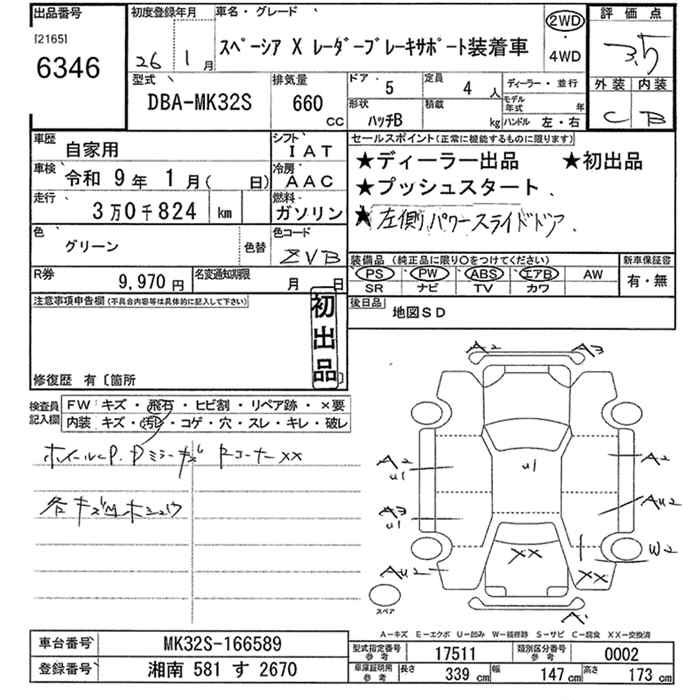 出品番号
[2165]
6346
初度登録年月
26年 1月
車名・グレード
スペーシア X レーダーブレーキサポート装着車
2WD
・
4WD
評価点
3.5
外装 内装
C B
型式
DBA-MK32S
排気量
660
CC
ドア
5
定員
4人
形状
ハッチB
積載
kg
ディーラー・並行
モデル年式 年
ハンドル 左・右
車歴
自家用
シフト
IAT
車検
令和 9年 1月( 日)
冷房
AAC
走行
3万0千824 km
燃料
ガソリン
色
グリーン
色替
色コード
ZVB
R券
9,970円
名変通知期限
月 日
セールスポイント(正常に機能するものに限ります)
★ディーラー出品 ★初出品
★プッシュスタート
★左側パワースライドドア
装備品 (純正品に限り○をつけてください)
PS PW ABS エアB AW
SR ナビ TV カワ
新車保証書
有・無
後日品
地図SD
注意事項申告欄(不具合内容等は具体的に記入して下さい)
初出品
修復歴 有〔箇所 〕
検査員記入欄
FW キズ・飛石・ヒビ割・リペア跡・×要
内装 キズ・汚れ・コゲ・穴・スレ・キレ・破レ
ホイールC.P.
ミラーキズ
コーナーXX
各キズ
A2 A3
A2 U1
U1
A2
A3 U1
AU2
XX
XX
W2
AU2
A
スペア
A―キズ E―エクボ U―凹み W―補修跡 S―サビ C―腐食 XX―交換済
車台番号
MK32S-166589
登録番号
湘南 581 す 2670
型式指定番号 参考
17511
類別区分番号 参考
0002
車庫証明用 参考
長さ 339 cm
幅 147 cm
高さ 173 cm